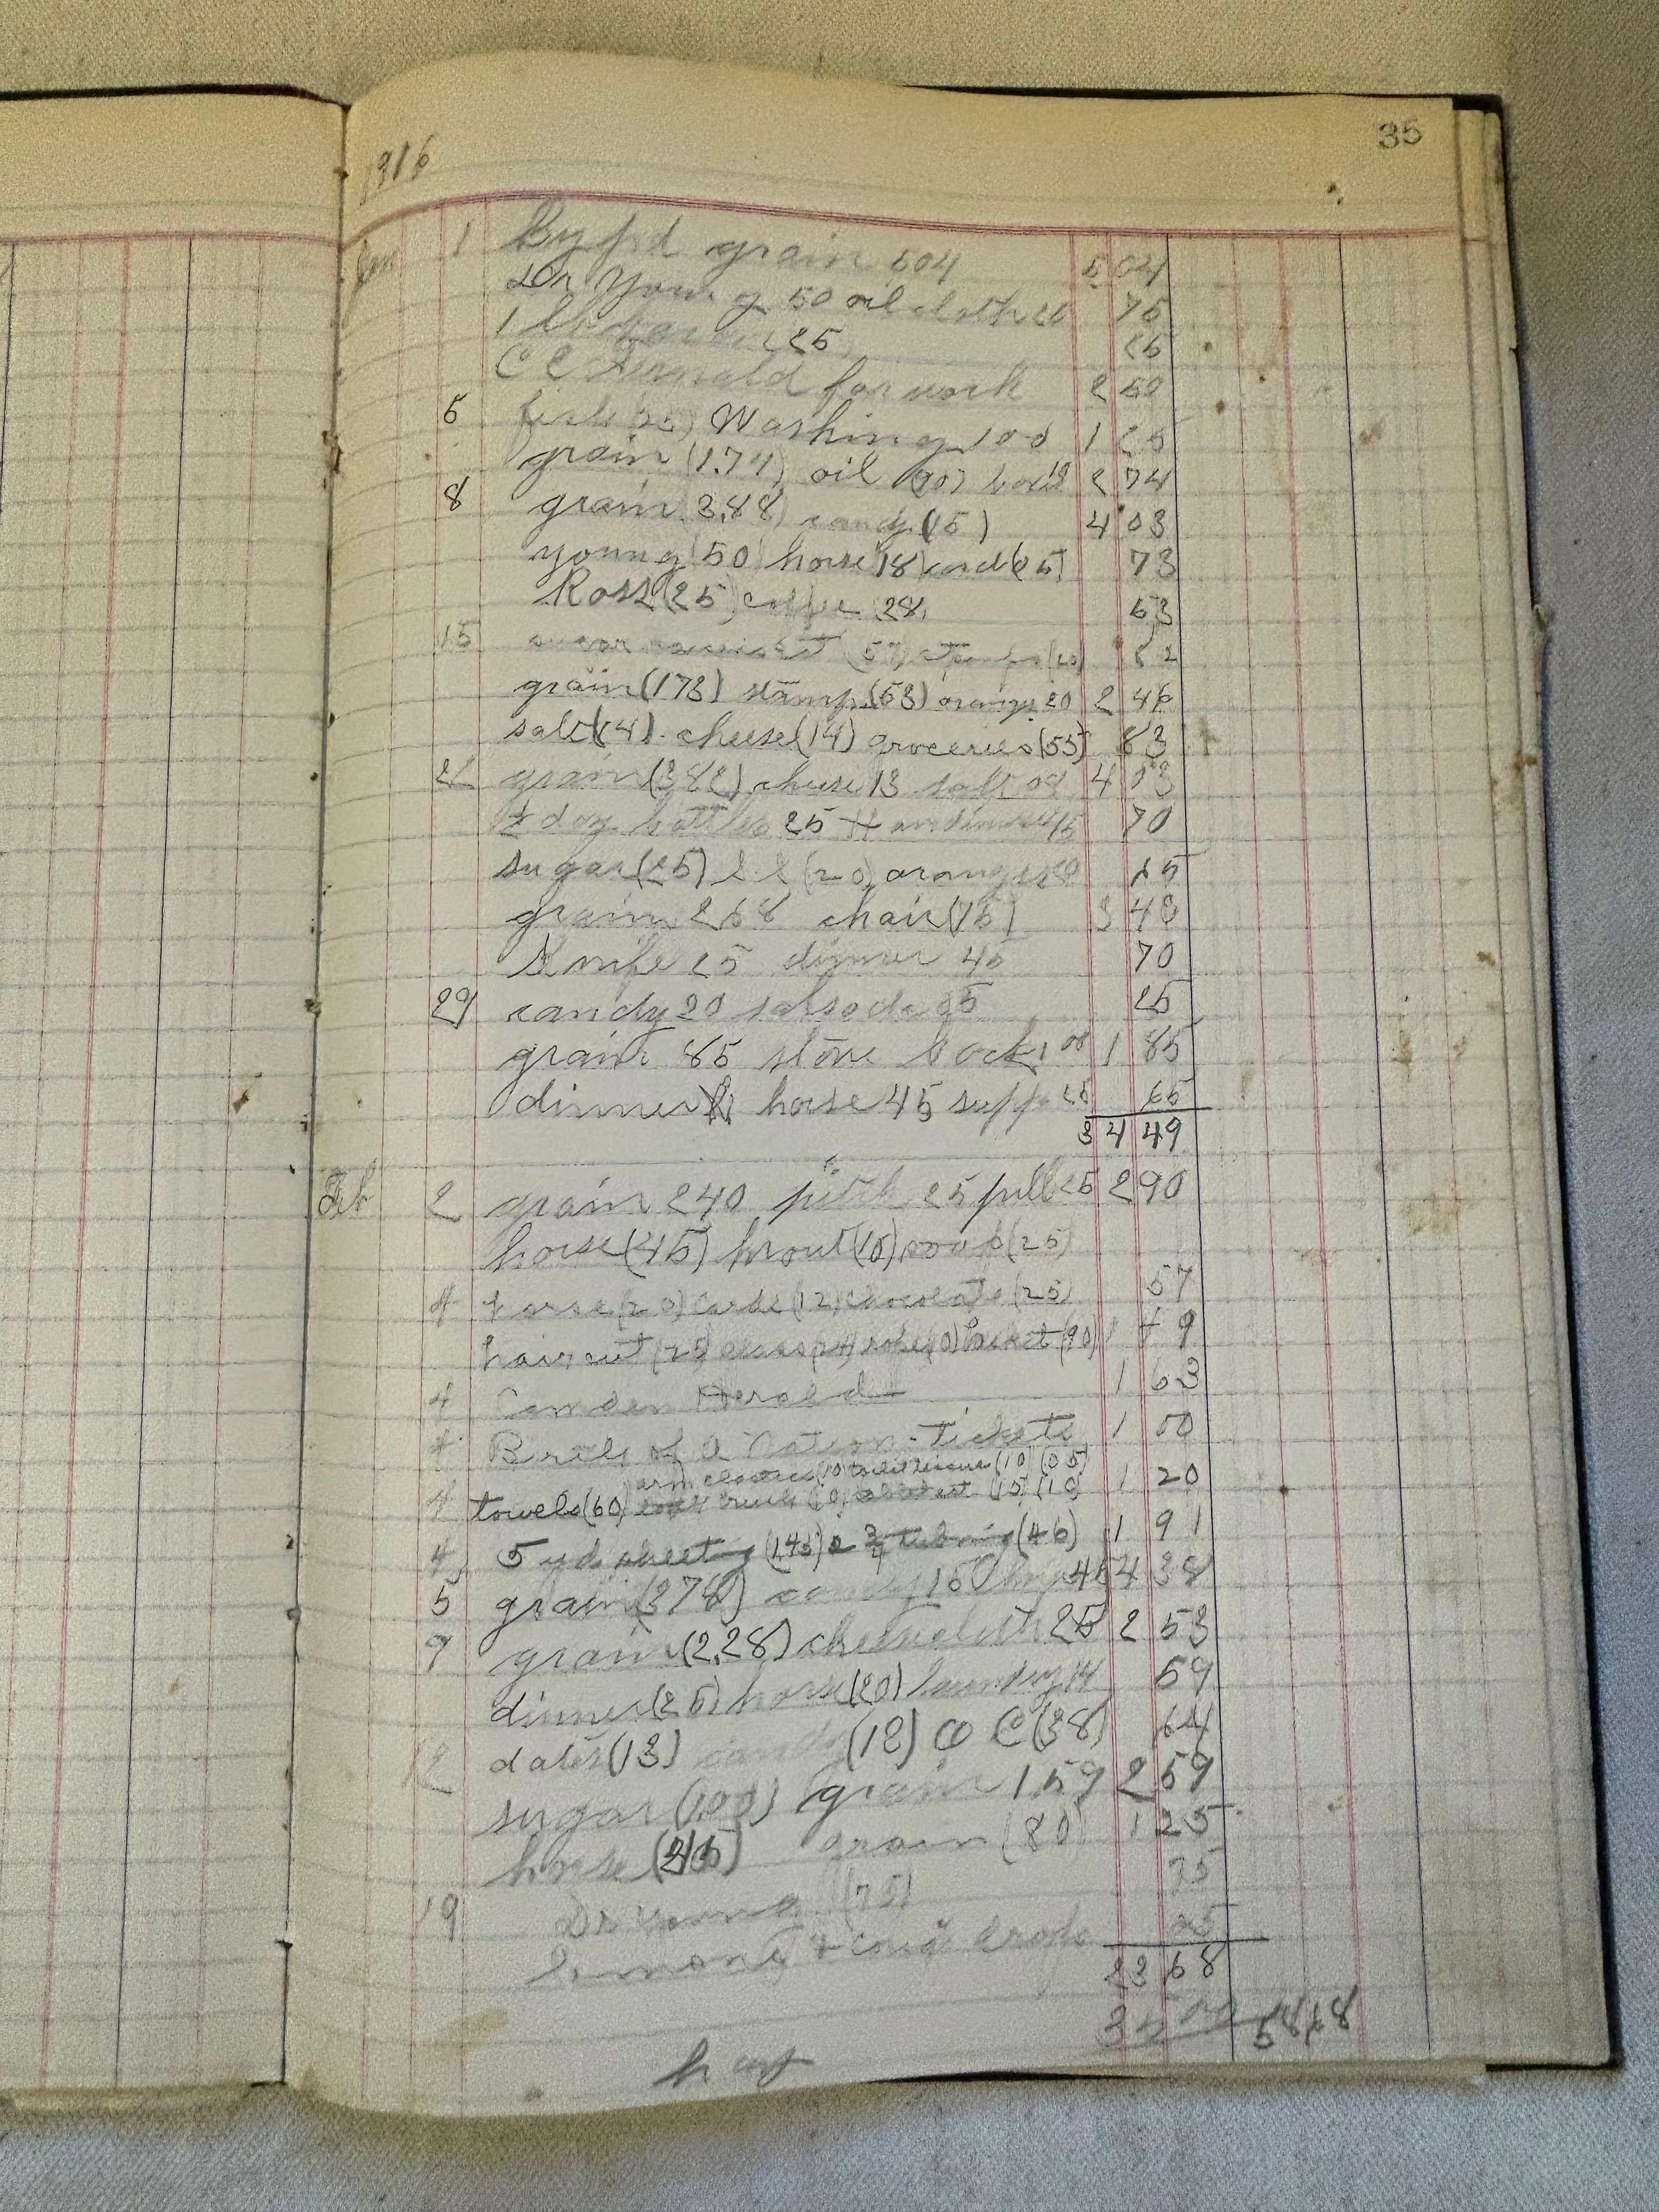 35
1916
Jan 1 By pd grain 504 5 04
Dr Young 50 oil cloth 25 75
1 25 25
C E Fernald for work 2 50
5 fish 25) Washing 100 1 25
grain (1.74) oil (90) 10 2 74
8 grain 3.88) candy (15) 4 03
young (50) horse 18) card (05) 73
Ross (25) coffee (28) 53
15 sugar (57) stamps (25) 82
grain (173) stamp (53) orange 20 2 46
salt (14) cheese (14) groceries (55) 83
21 grain (382) cheese 13 salt 08 4 03
½ doz bottles 25 H and dinner 45 70
sugar (25) (20) oranges 20 65
grain 268 chair (75) 3 43
Knife 25 dinner 45 70
29 candy 20 salsoda 05 25
grain 85 stone 1 00 1 85
dinner horse 45 supp 25 65
34 49
Feb 2 grain 240 25 pills 25 2 90
horse (45) (10) soup (25)
4 horse (20) cards (12) chocolate (25) 57
haircut (25) (24) (10) (90) 1 49
4 Camden Herald 1 63
4 Birth of a Nation - tickets 1 50
arm elastics (10) toilet tissue (10) (05)
4 towels (60) (15) (10) 1 20
4 5 yd sheeting (1.45) 2 3/4 tubing (46) 1 91
5 grain (378) candy 15 45 4 38
9 grain (2.28) cheesecloth 25 2 53
dinner (25) horse (20) laundry 14 59
12 dates (13) candy (12) O C (38) 64
sugar (1.00) grain 1 59 2 59
horse (45) grain (80) 1 25
19 Dr Young (75) 75
lemons & coug drops 25
23 68
35 00 58 68